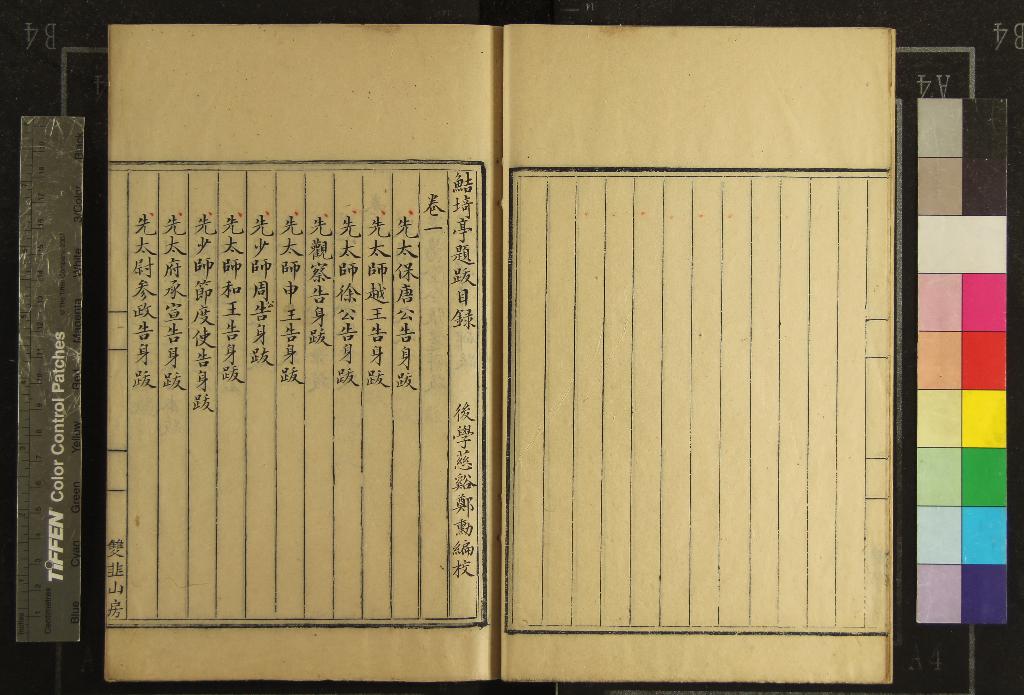 鮚埼亭題跋目録 後學慈谿鄭勳編校
卷一
先太保唐公告身跋
先太師越王告身跋
先太師徐公告身跋
先觀察告身跋
先太師申王告身跋
先少師周告身跋
先太師和王告身跋
先少師節度使告身跋
先太府承宣告身跋
先太尉参政告身跋
雙韭山房
TIFFEN Color Control Patches
Blue
Cyan
Green
Yellow
Red
Magenta
White
3/Color
Black
Inches
Centimetres
B4
B4
A4
A4